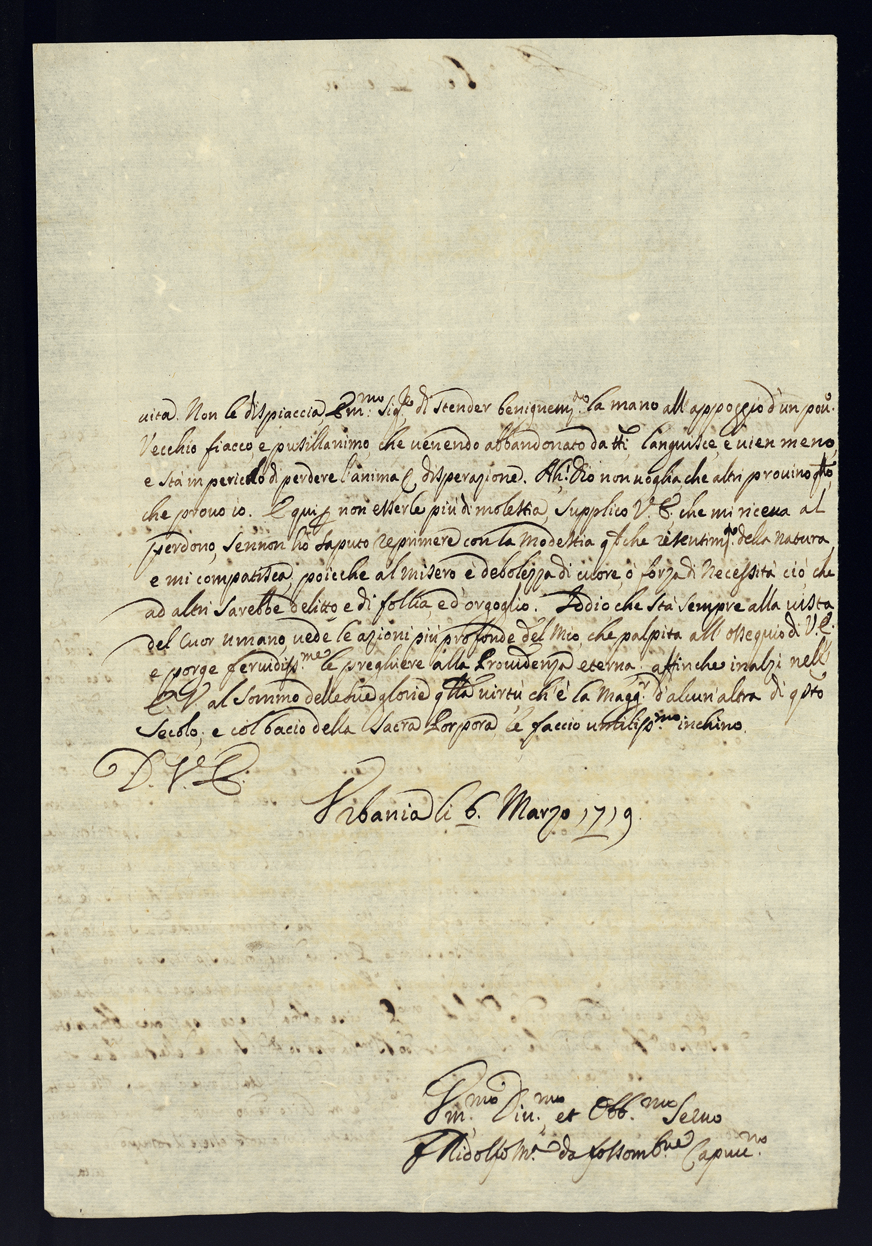 uita. Non le dispiaccia Em:mo Sig.re di stender benignemte. la mano all'appoggio d'un pou:
Vecchio fiacco, e pusillanimo, che uenendo abbandonato da tti languisce, e uien meno,
e stà in pericolo di perdere l'anima p disperazione. Ah! Dio non uoglia che altri prouino qto,
che prouo io. E qui p non esserle più di molestia, supplico V. E. che mi riceua al
perdono, sennon hò saputo reprimere con la modestia qlche resentimto. della natura
e mi compatisca, poicche al misero è debolezza di cuore, ò forza di necessità ciò, che
ad altri sarebbe delitto e di follia, e d'orgoglio. Iddio che stà sempre alla uista
del cuor umano, uede le azioni più profonde del mio, che palpita all'ossequio di V. E.
e porge feruidissme le preghiere alla Prouidenza eterna affinche inalzi nell'
E. V. al sommo delle sue glorie qlla uirtù, ch'è la magg.r d'alcun'altra di qsto
secolo; e col bacio della Sacra Porpora, le faccio umilissmo. inchino.
D. V. E.
Vrbania li 6. Marzo 1719.
Vm.mo Diu.mo et Obb.mo Seruo
F Ridolfo Ma. da fossomb.ne Capuc.no